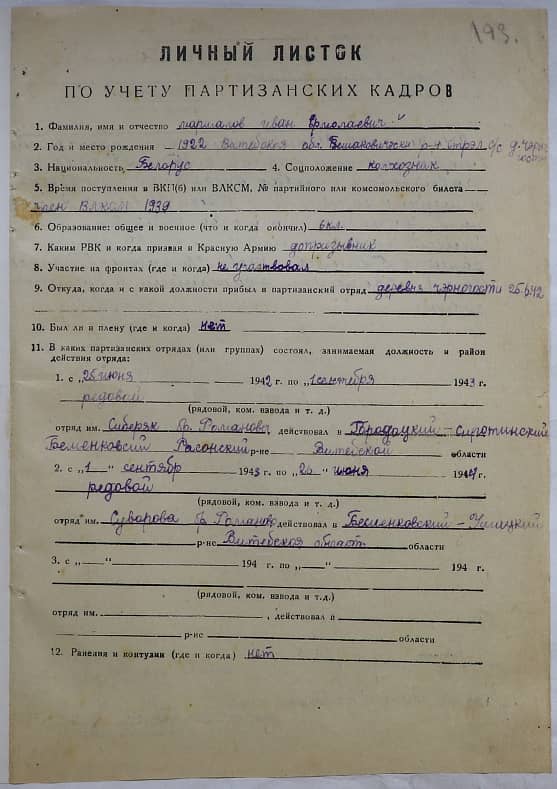 193.
ЛИЧНЫЙ ЛИСТОК
ПО УЧЕТУ ПАРТИЗАНСКИХ КАДРОВ
1. Фамилия, имя и отчество Маршалов иван Ермолаевич
2. Год и место рождения – 1922 Витебская обл. Бешанковически р-н с/с д.
3. Национальность Белорус 4. Соцположение колхозник
5. Время поступления в ВКП(б) или ВЛКСМ, № партийного или комсомольского билета
член ВЛКСМ 1939
6. Образование: общее и военное (что и когда окончил) 6 кл.
7. Каким РВК и когда призван в Красную Армию допризывник
8. Участие на фронтах (где и когда) не участвовал
9. Откуда, когда и с какой должности прибыл в партизанский отряд деревня 25.6.42
10. Был ли в плену (где и когда) нет
11. В каких партизанских отрядах (или группах) состоял, занимаемая должность и район
действия отряда:
1. с „25 июня 1942 г. по „1 сентября 1943 г.
редовой
(рядовой, ком. взвода и т. д.)
отряд им. Сиберяк бр. Романова, действовал в Городоцкий – Сиротинский
Бесменковский Расонский р-не Витебской области
2. с „1“ сентябр 1943 г. по „25“ июня 1944 г.
редовой
(рядовой, ком. взвода и т. д.)
отряд им. Суварова бр Романово действовал в Бесменковский – Ушацкий
р-не Витебская область области
3. с „ “ 194 г. по „ “ 194 г.
(рядовой, ком. взвода и т. д.)
отряд им. , действовал в
р-не области
12. Ранения и контузии (где и когда) нет